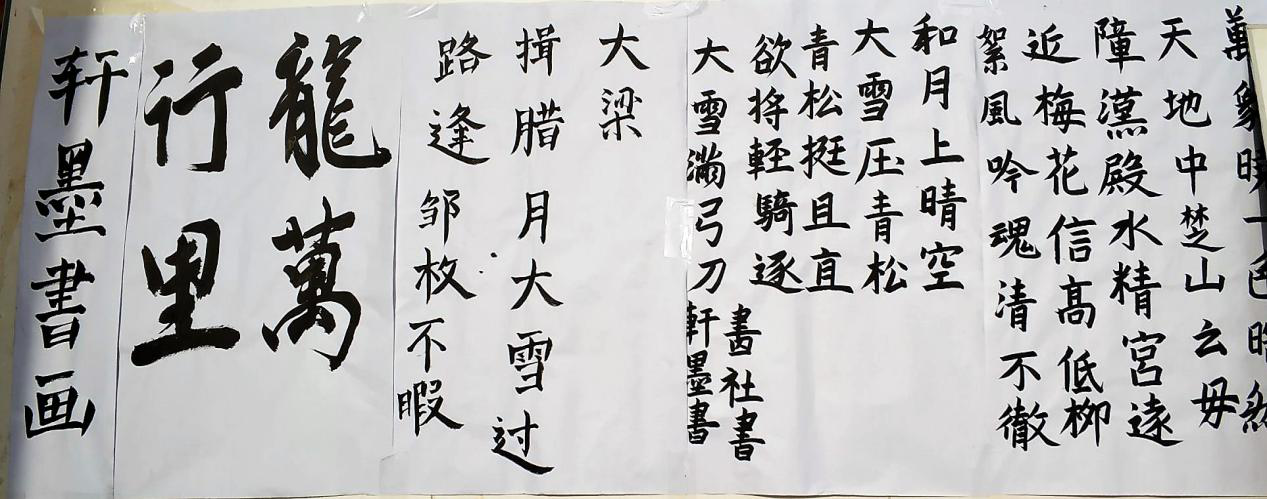 萬象曉一色晧然
天地中楚山云母
障漢殿水精宮遠
近梅花信高低柳
絮風吟魂清不徹
和月上晴空
大雪压青松
青松挺且直
欲将軽騎逐
大雪滿弓刀
畫社書
軒墨書
大梁
揖腊月大雪过
路逢邹枚不暇
龍萬
行里
轩墨書画